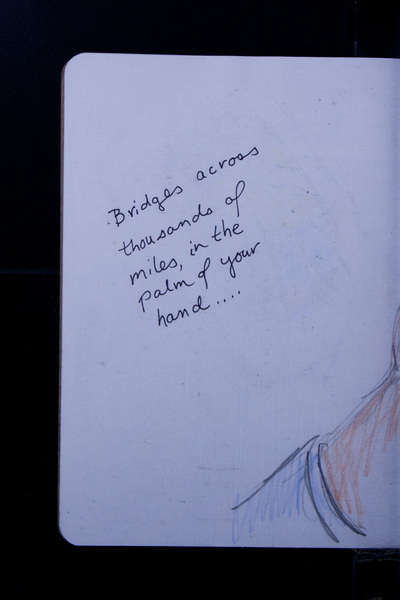 Bridges across
thousands of
miles, in the
palm of your
hand....